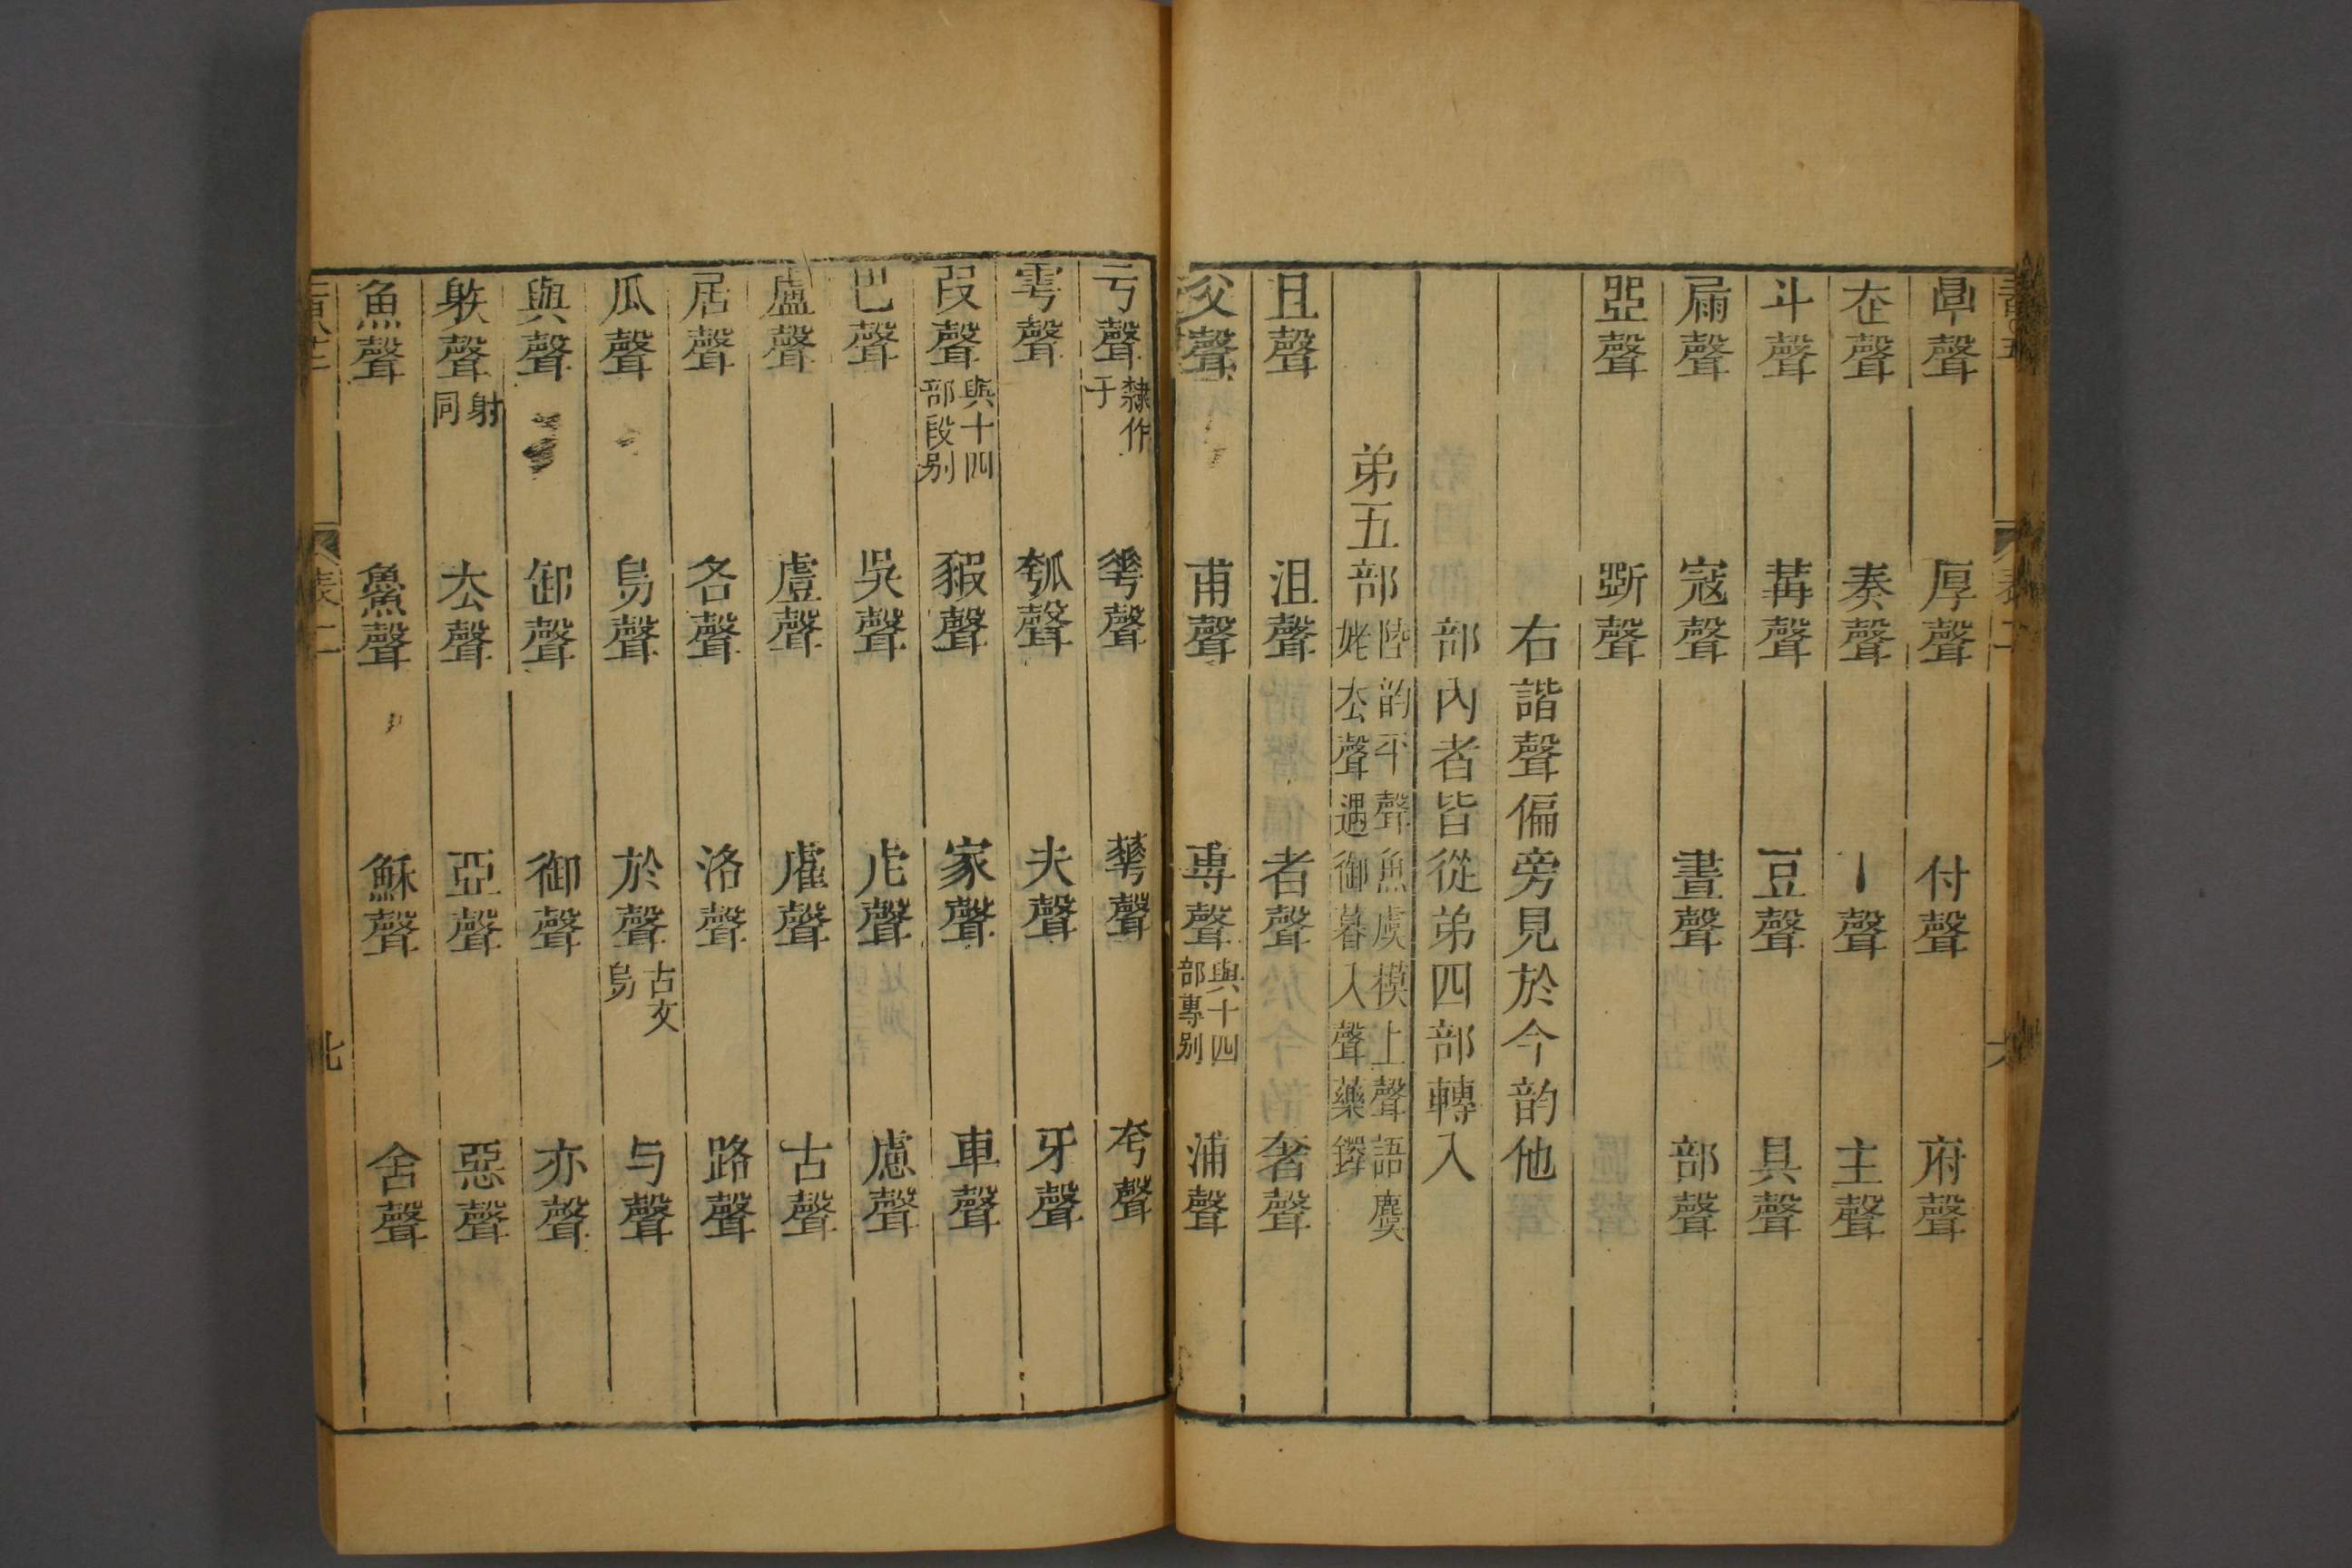 㫗聲 厚聲 付聲 府聲
𡉚聲 奏聲 丨聲 主聲
斗聲 冓聲 豆聲 具聲
屚聲 寇聲 晝聲 部聲
㔷聲 斲聲
右諧聲偏旁見於今韵他
部內者皆從弟四部轉入
弟五部 陸韵平聲魚虞模上聲語麌
姥厺聲遇御暮入聲藥鐸
且聲 沮聲 者聲 奢聲
父聲 甫聲 尃聲 與十四部專別 浦聲
亏聲 隸作于 𠌶聲 華聲 夸聲
雩聲 瓠聲 夫聲 牙聲
叚聲 與十四部段別 豭聲 家聲 車聲
巴聲 吳聲 虍聲 慮聲
盧聲 虘聲 虖聲 古聲
居聲 各聲 洛聲 路聲
瓜聲 烏聲 於聲 古文烏 与聲
與聲 卸聲 御聲 亦聲
䠶聲 射同 厺聲 亞聲 惡聲
魚聲 𩺰聲 穌聲 舍聲
表二